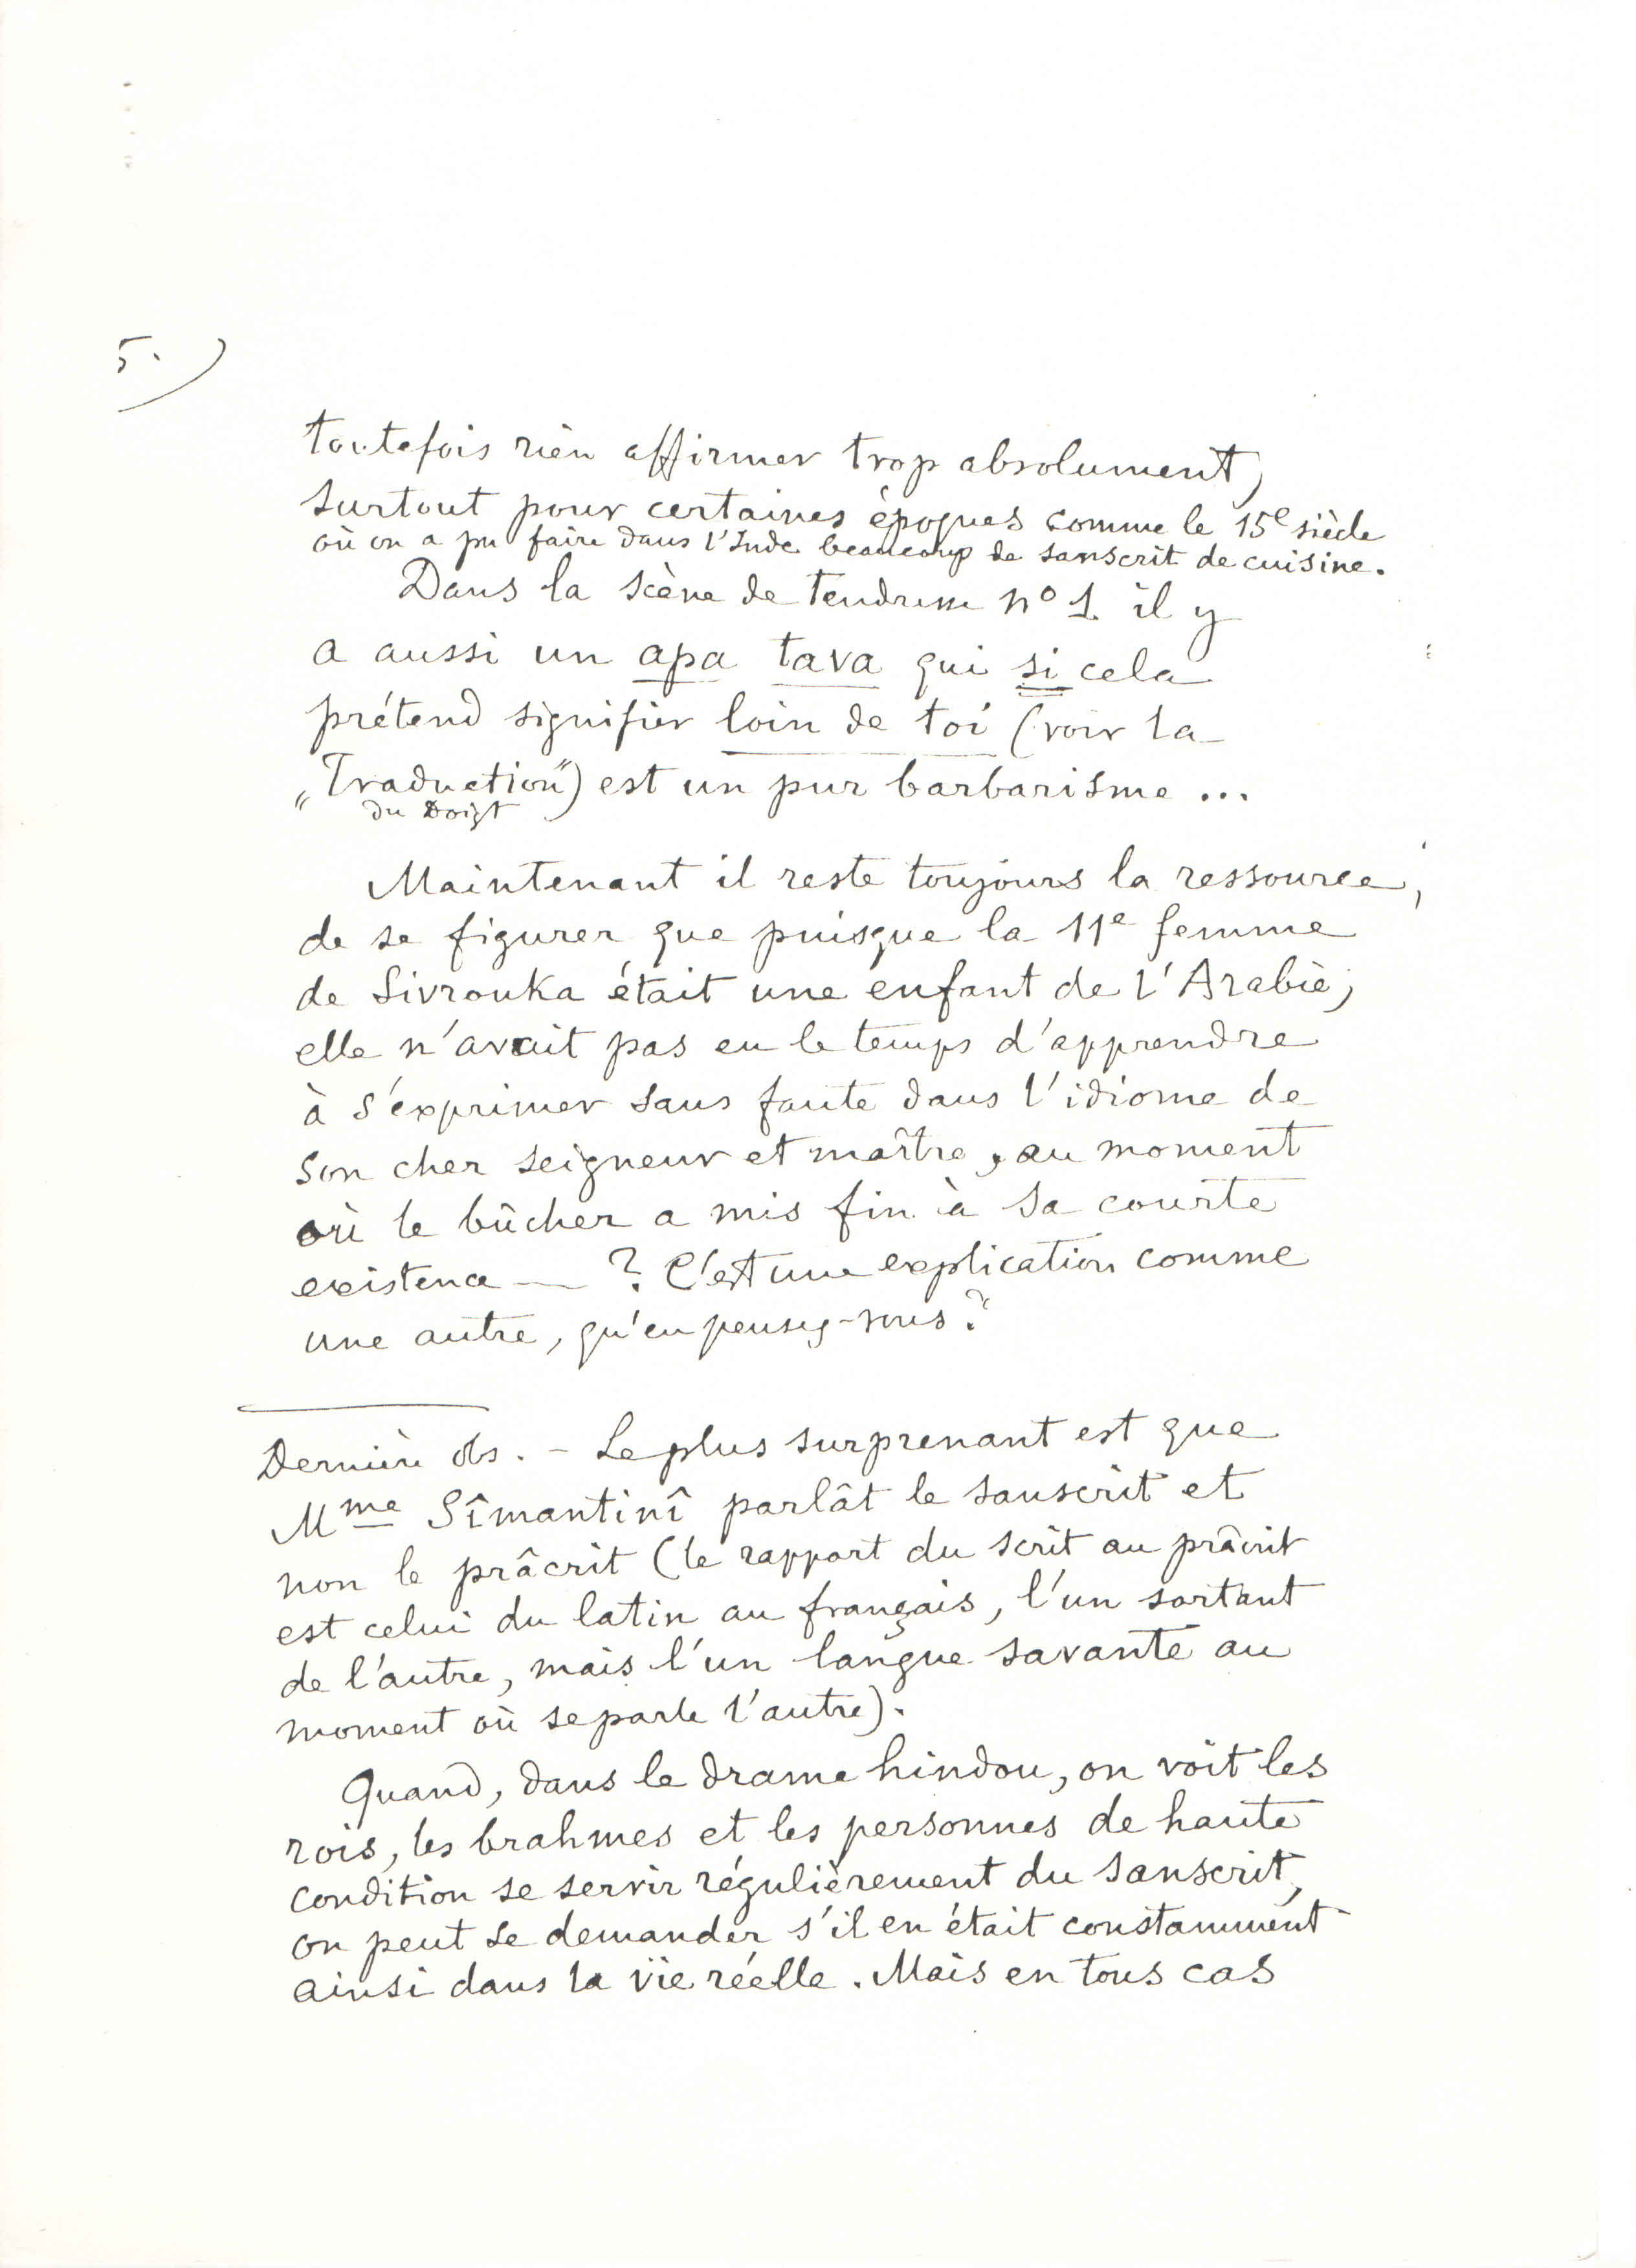 5.)
toutefois rien affirmer trop absolument,
surtout pour certaines époques comme le 15e siècle
où on a pu faire dans l'Inde beaucoup de sanscrit de cuisine.
Dans la scène de tendresse nº 1 il y
a aussi un apa tava qui si cela
prétend signifier loin de toi (voir la
„Traduction")  est un pur barbarisme ...
du Doigt
Maintenant il reste toujours la ressource,
de se figurer que puisque la 11e femme
de Sivrouka était une enfant de l'Arabie,
elle n'avait pas eu le temps d'apprendre
à s'exprimer sans faute dans l'idiome de
son cher seigneur et maître, au moment
où le bûcher a mis fin à sa courte
existence — ? C'est une explication comme
une autre, qu'en pensez-vous?
Dernière obs. – Le plus surprenant est que
Mme Sîmantinî parlât le sanscrit et
non le prâcrit (le rapport du scrit au prâcrit
est celui du latin au français, l'un sortant
de l'autre, mais l'un langue savante au
moment où se parle l'autre).
Quand, dans le drame hindou, on voit les
rois, les brahmes et les personnes de haute
condition se servir régulièrement du sanscrit,
on peut se demander s'il en était constamment
ainsi dans la vie réelle. Mais en tous cas